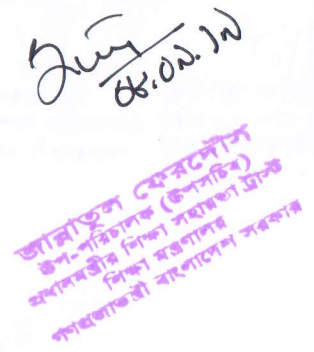 জান্নাতুল ফেরদৌস
উপ-পরিচালক (উপসচিব)
প্রধানমন্ত্রীর শিক্ষা সহায়তা ট্রাস্ট
শিক্ষা মন্ত্রণালয়
গণপ্রজাতন্ত্রী বাংলাদেশ সরকার